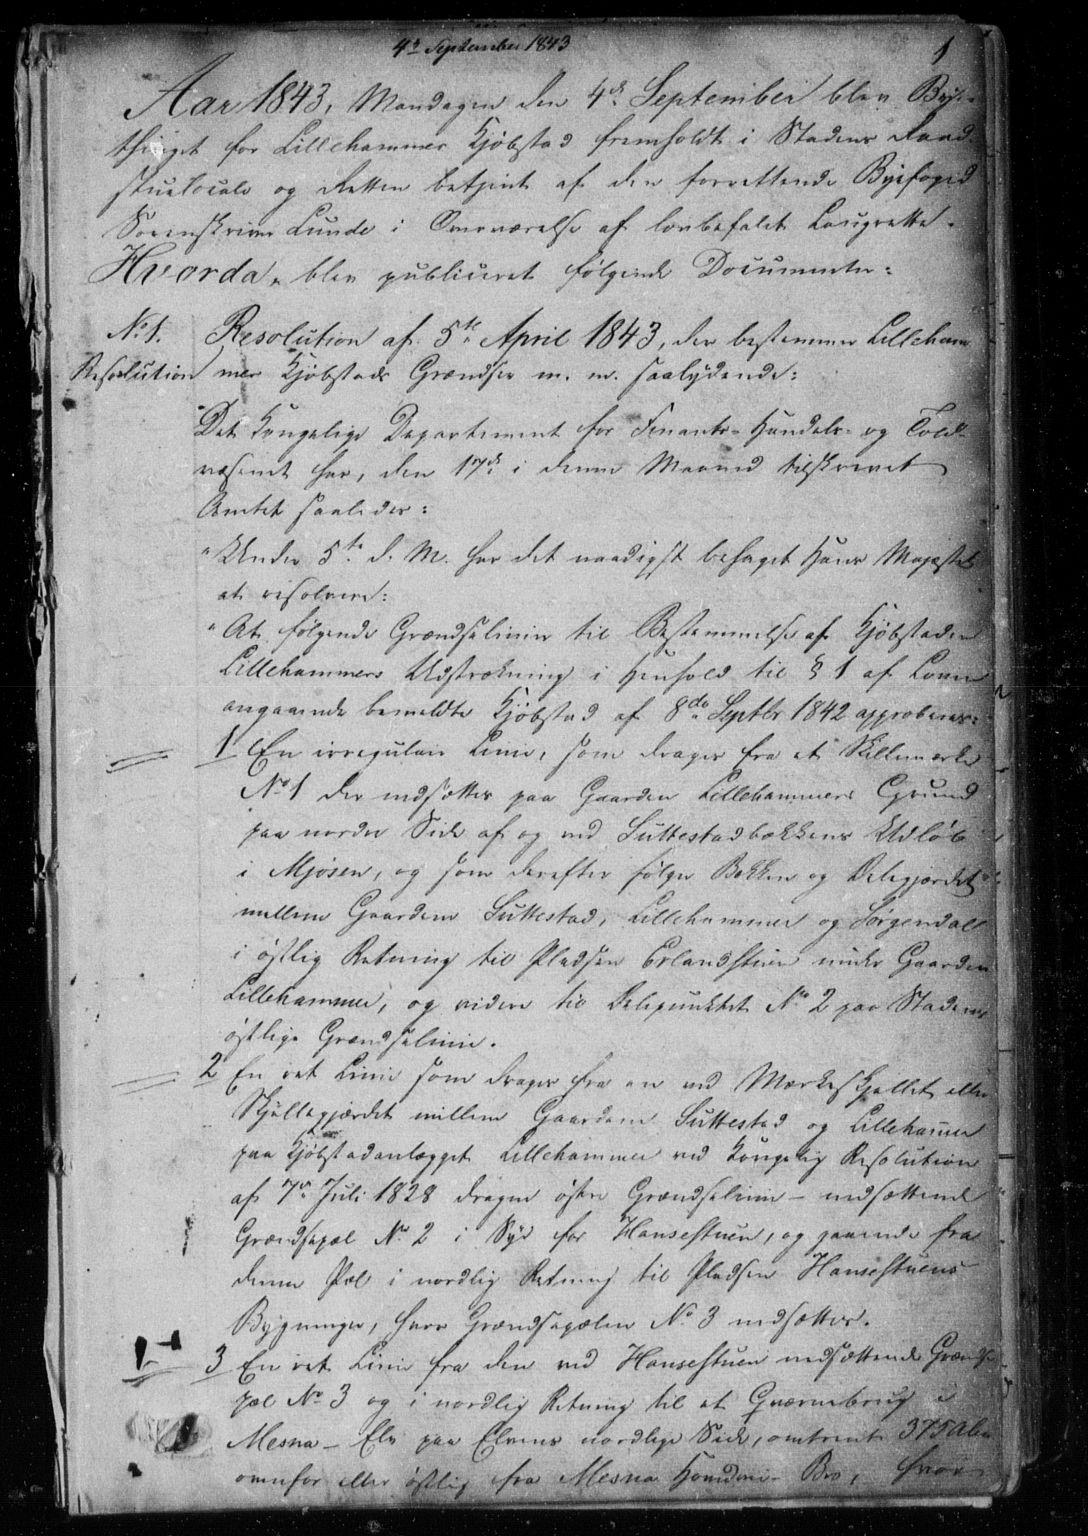 4de September 1843
1
Aar 1843, Mandagen den 4de September blev Bye-
thinget for Lillehammer Kjøbstad fremholdt i Stadens Raad-
stuelocale og Retten betjent af den forrettende Byefoged
Sorenskriver Lunde i Overværelse af lovbefalet Laugrette.
Hvorda, blev publiceret følgende Documenter:
No 1. Resolution af 5te April 1843, der bestemmer Lilleham
Resolution mer Kjøbstads Grændser m. m. saalydende:
Det Kongelige Departement for Finants- Handels- og Told-
væsenet har, den 17de i denne Maaned tilskrevet
Amtet saaledes:
"Under 5te d. M. har det naadigst behaget Hans Majestæt
at resolvere:
"At følgende Grændselinier til Bestemmelse af Kjøbstaden
Lillehammers Udstrækning i Henhold til § 1 af Loven
angaaende bemeldte Kjøbstad af 8de Septbr 1842 approberes:
1 En irregulair Linie, som drages fra et Skillemærke
No 1 der nedsættes paa Gaarden Lillehammers Grund
paa nordre Side af og ved Suttestadbækkens Udløb
i Mjøsen, og som derefter følger Bækken og Delegjærdet
mellem Gaardene Suttestad, Lillehammer og Sørgendal
i østlig Retning til Pladsen Erlandstuen under Gaarden
Lillehammer, og videre til Delepunktet No 2 paa Stadens
østlige Grændselinie.
2 En ret Linie som drages fra en ved Mærkeskjellet eller
Skjellegjærdet mellem Gaardene Suttestad og Lillehamer
paa Kjøbstadanlægget Lillehammer ved Kongelig Resolution
af 7de Juli 1828 dragne østre Grændselinie - nedsættende
Grændsepæl No 2 i Syd for Hansestuen, og gaaende fra
denne Pæl i nordlig Retning til Pladsen Hansestuens
Bygninger, hvor Grændsepælen No 3 nedsættes.
3 En ret Linie fra den ved Hansestuen nedsættende Grændse
pæl No 3 og i nordlig Retning til et Qværnebrug i
Mesna- Elv paa Elvens nordlige Side, omtrent 375 Alen
ovenfor eller østlig fra Mesna Bro, hvor